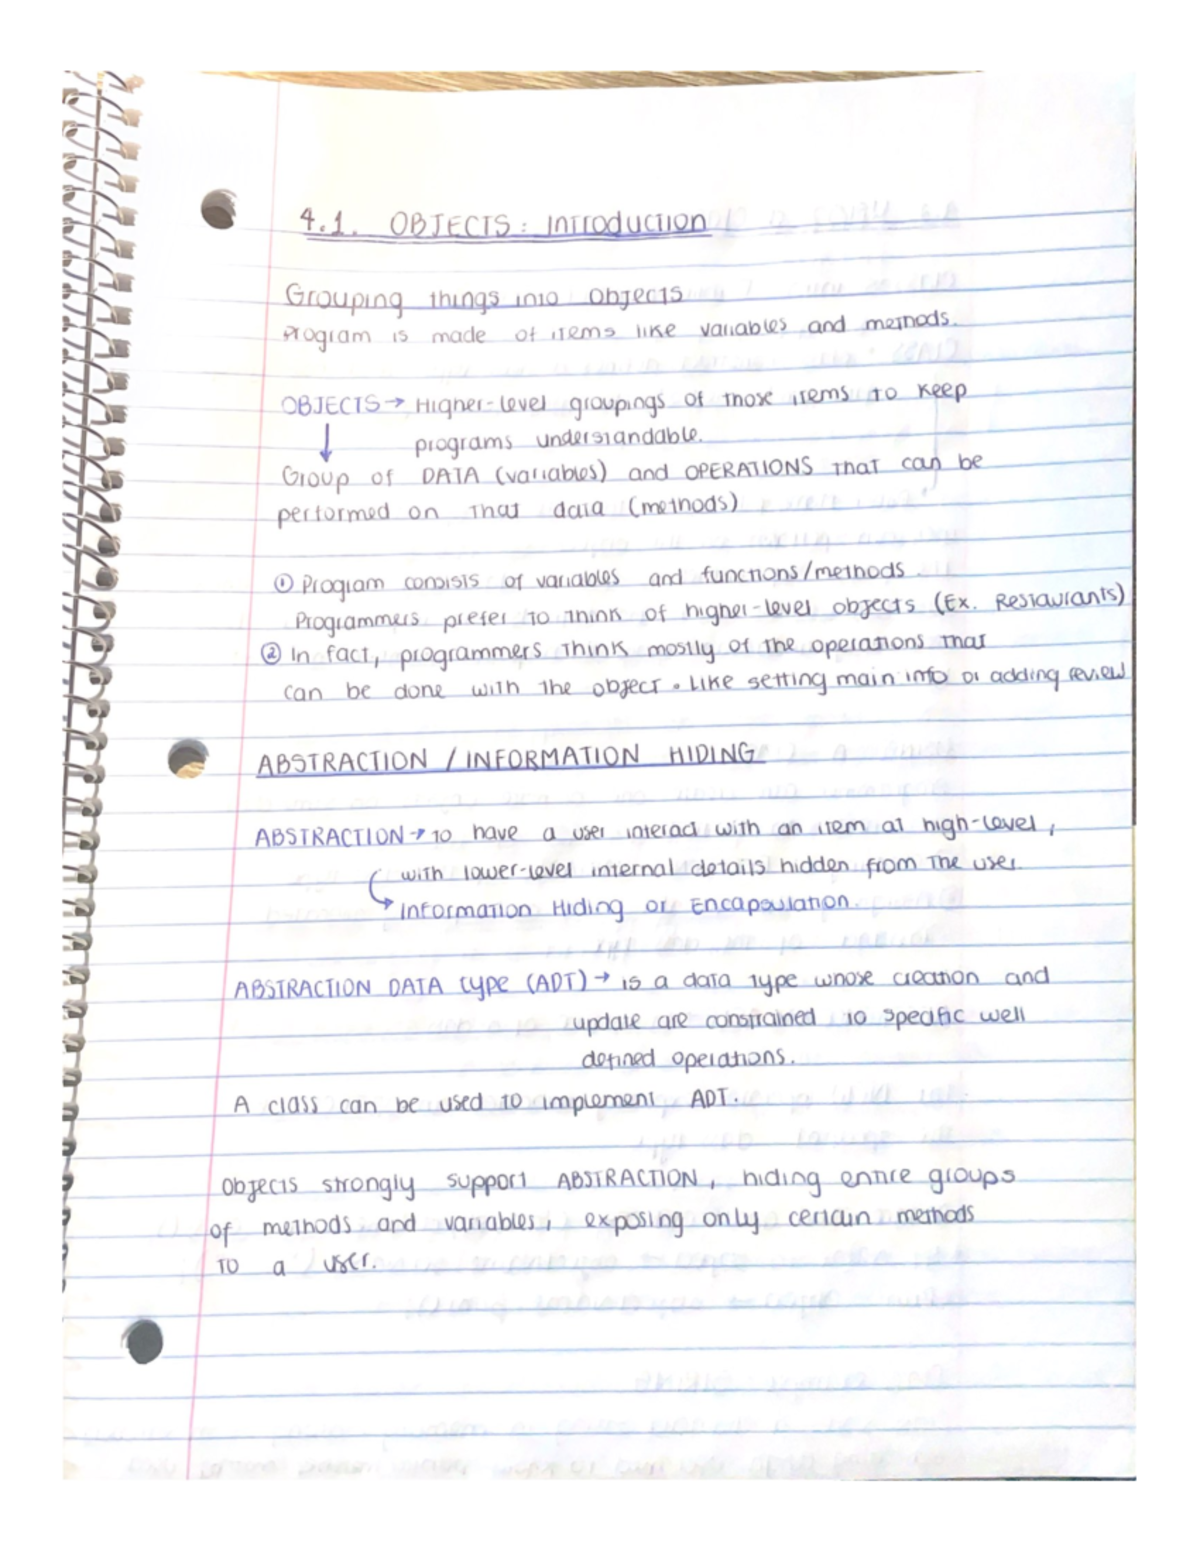 4.1. OBJECTS: Introduction
Grouping things into objects
Program is made of items like variables and methods.
OBJECTS → Higher-level groupings of those items to keep
programs understandable.
Group of DATA (variables) and OPERATIONS that can be
performed on that data (methods)
① Program consists of variables and functions/methods.
Programmers prefer to think of higher-level objects (Ex. Restaurants)
② In fact, programmers think mostly of the operations that
can be done with the object. Like setting main info or adding review
ABSTRACTION / INFORMATION HIDING
ABSTRACTION → to have a user interact with an item at high-level,
with lower-level internal details hidden from the user.
Information Hiding or Encapsulation.
ABSTRACTION DATA type (ADT) → is a data type whose creation and
update are constrained to specific well
defined operations.
A class can be used to implement ADT.
Objects strongly support ABSTRACTION, hiding entire groups
of methods and variables, exposing only certain methods
to a user.